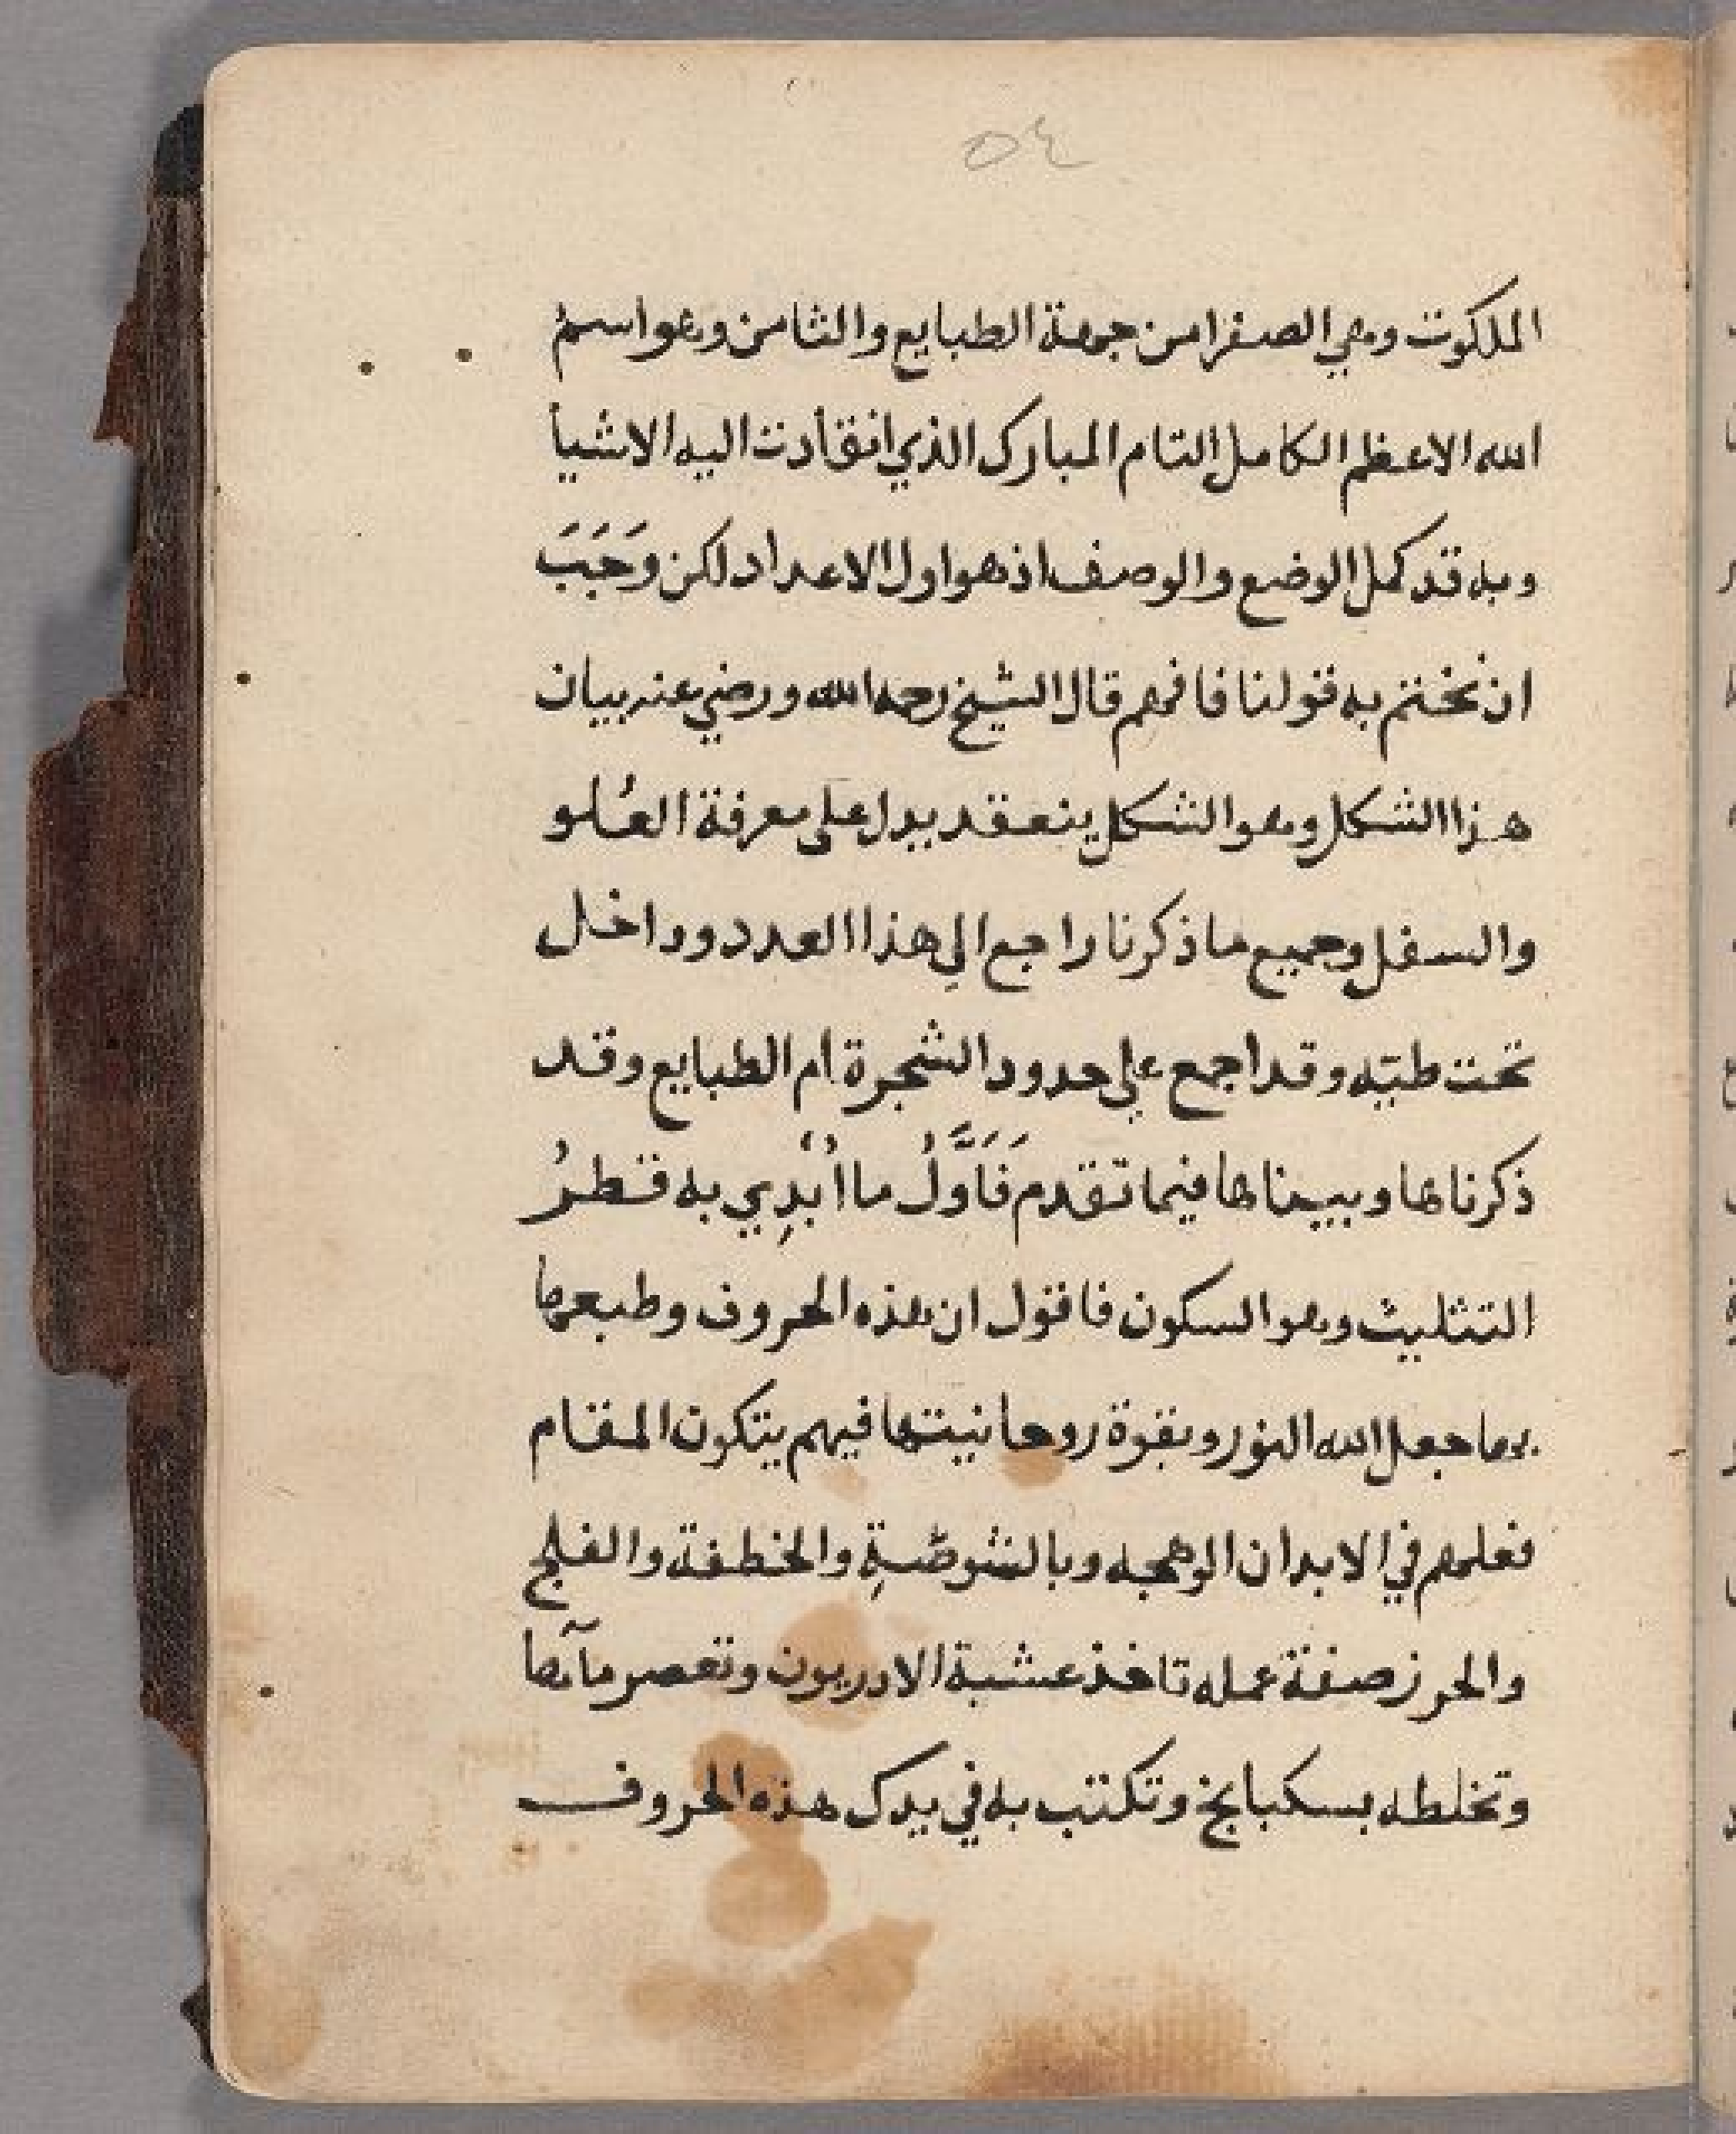 ٥٤
الملكوت وهي الصفرا من جهة الطبايع والثامن وهو اسم
الله الاعظم الكامل التام المبارك الذي انقأدت اليه الاشيأ
وبه قد كمل الوضع والوصف اذ هو اول الاعداد لكن وَجَبَ
ان نختم به قولنا فافهم قال الشيخ رحمه الله ورضي عنه بيان
هذا الشكل وهو الشكل ينعقد يدل على معرفة العُلو
والسفل وجميع ما ذكرنا راجع الِى هذا العدد وداخل
تحت طيّه وقد اجمع على حدود الشجرة ام الطبايع وقد
ذكرناها وبيناها فيما تقدم فَاَوَّلُ ما اُبْدِي به قطرُ
التثليث وهو السكون فاقول ان هذه الحروف وطبعها
بما جعل الله النور وبقوة روحانيتها فيهم يتكون المقام
فعلهم في الابدان الوهجه وبالشوصَةِ والخطفة والفلج
والحرز صفة عمله تاخذ عشبة الادريون وتعصر مآءها
وتخلطه بسكبابخ وتكتب به في يدك هذه الحروف